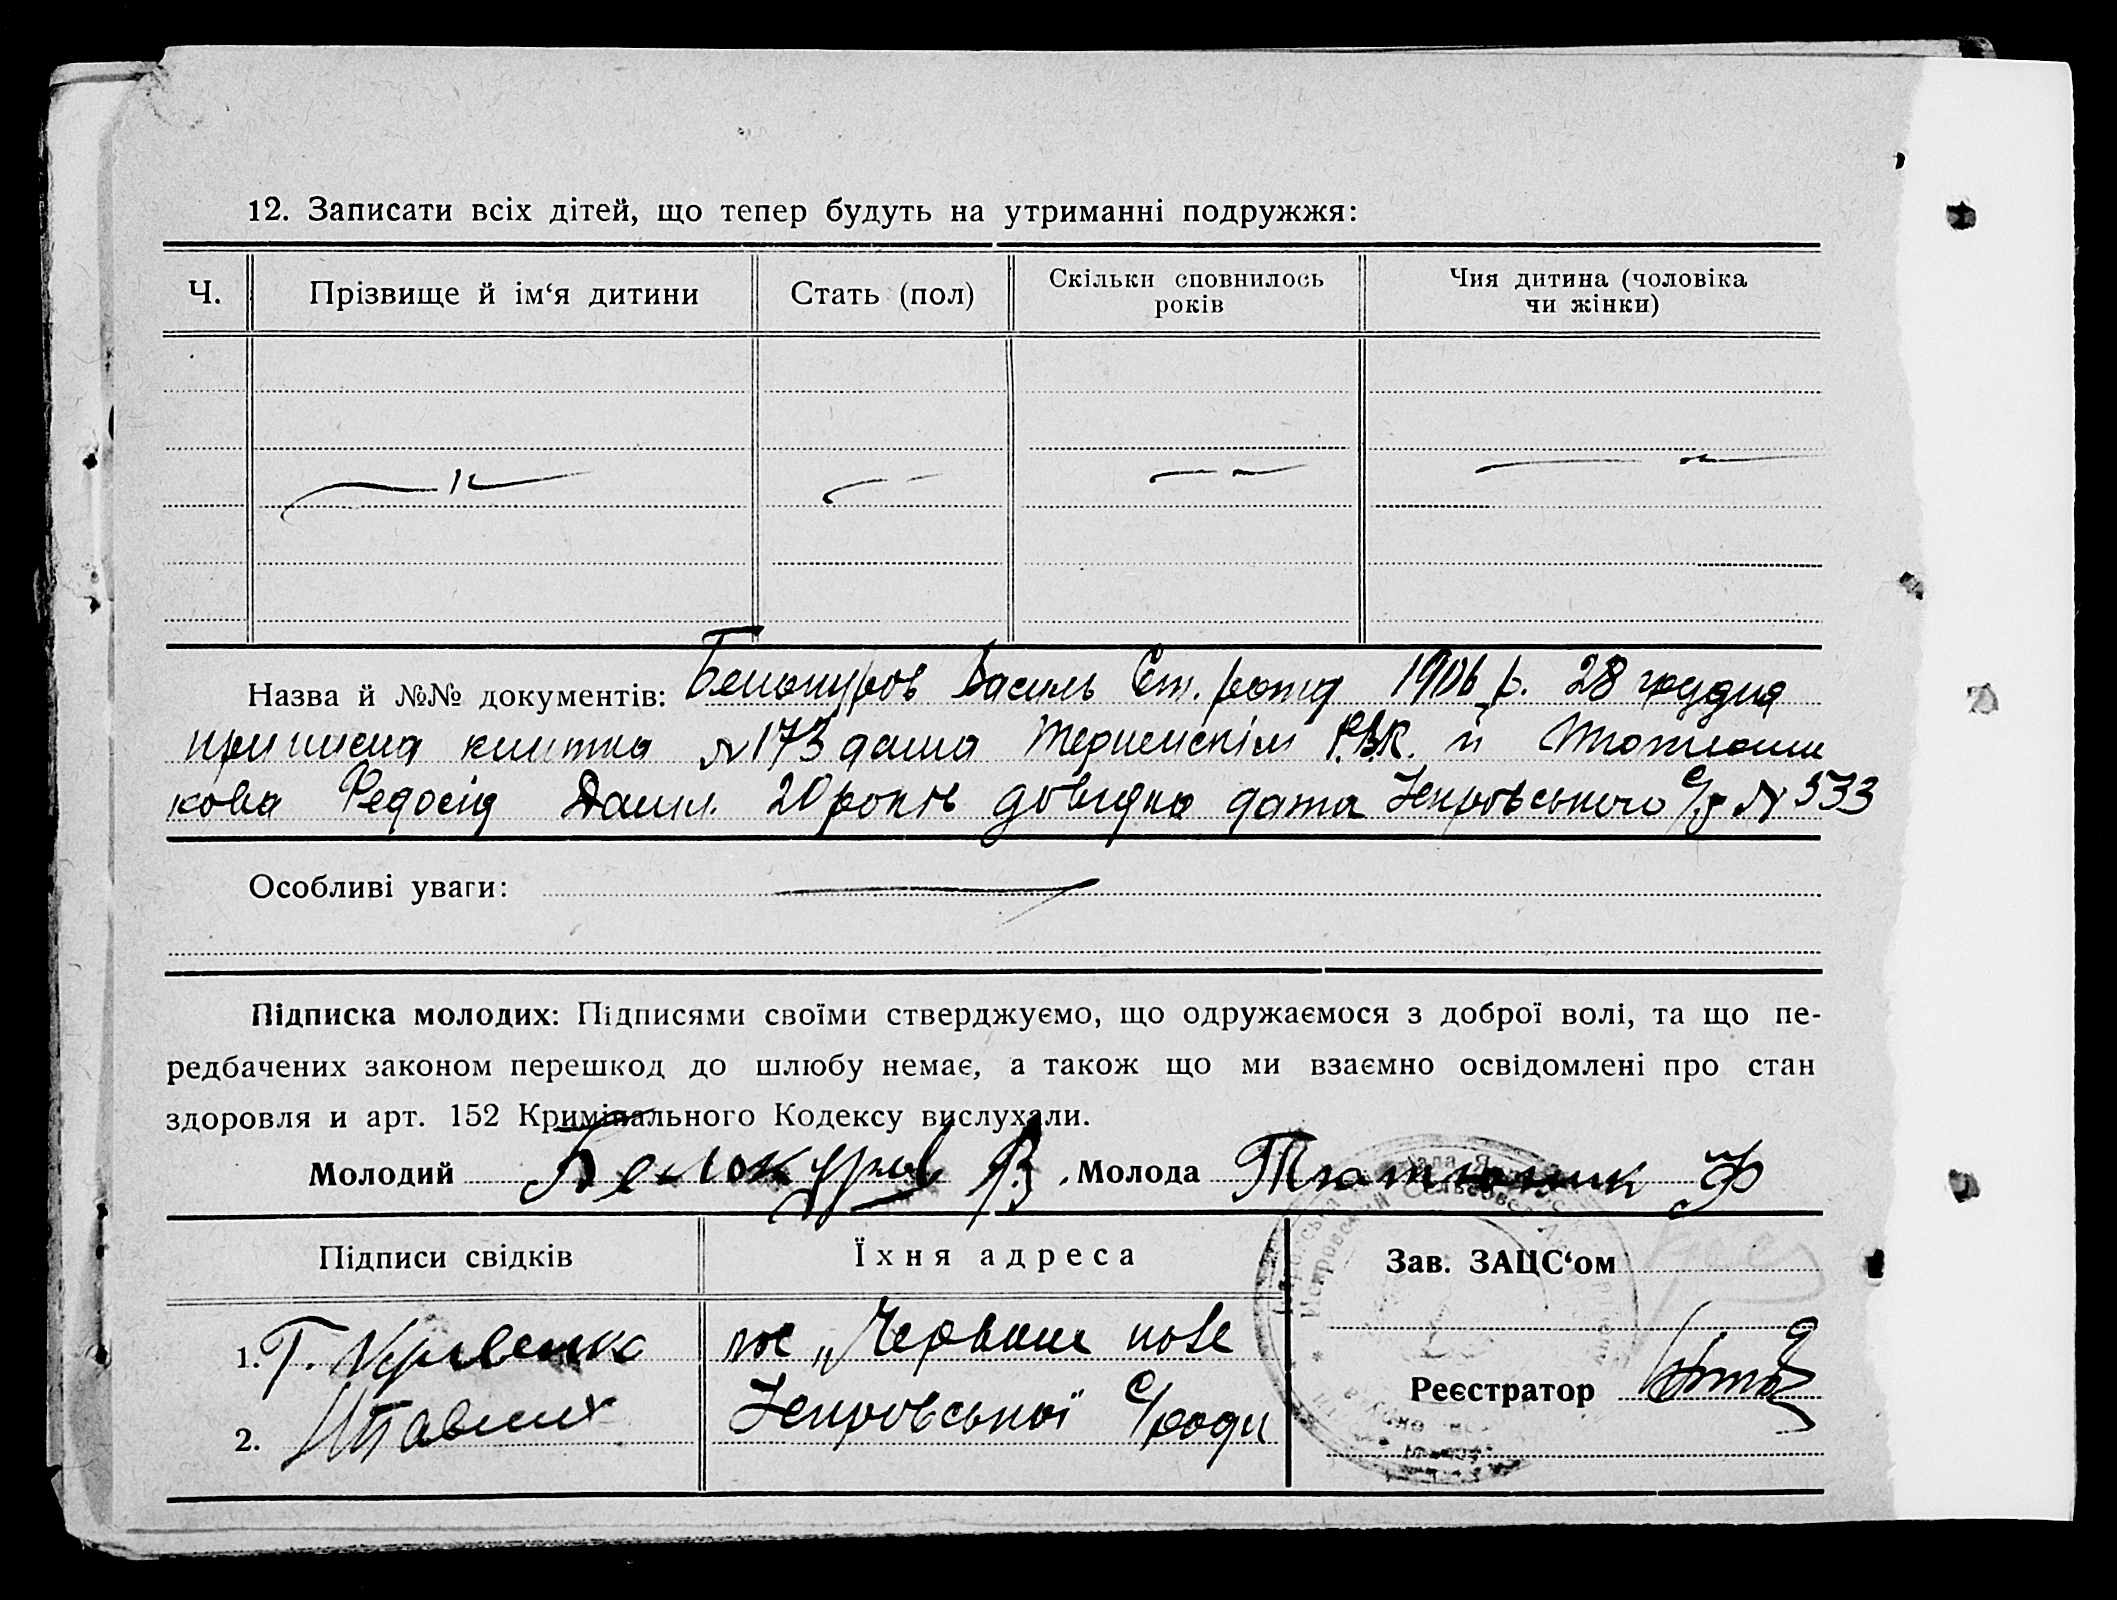 12. Записати всіх дітей, що тепер будуть на утриманні подружжя:
Ч. Прізвище й ім‘я дитини Стать (пол) Скільки сповнилось років Чия дитина (чоловіка чи жінки)
Назва й №№ документів: Белокуров Василь Ст. ротд 1906 р. 28 грудня
приписна книжка №173 дана РВК. й
кова Федосія Данил. 20 років довідка дата с/р № 533
Особливі уваги:
Підписка молодих: Підписями своїми стверджуємо, що одружаємося з доброї волі, та що пе-
редбачених законом перешкод до шлюбу немає, а також що ми взаємно освідомлені про стан
здоровля и арт. 152 Кримінального Кодексу вислухали.
Молодий Белокуров В. Молода Тютюник Ф
Підписи свідків Їхня адреса Зав. ЗАЦС‘ом
1. Г. „Червоне поле
Реєстратор
2. с/ради